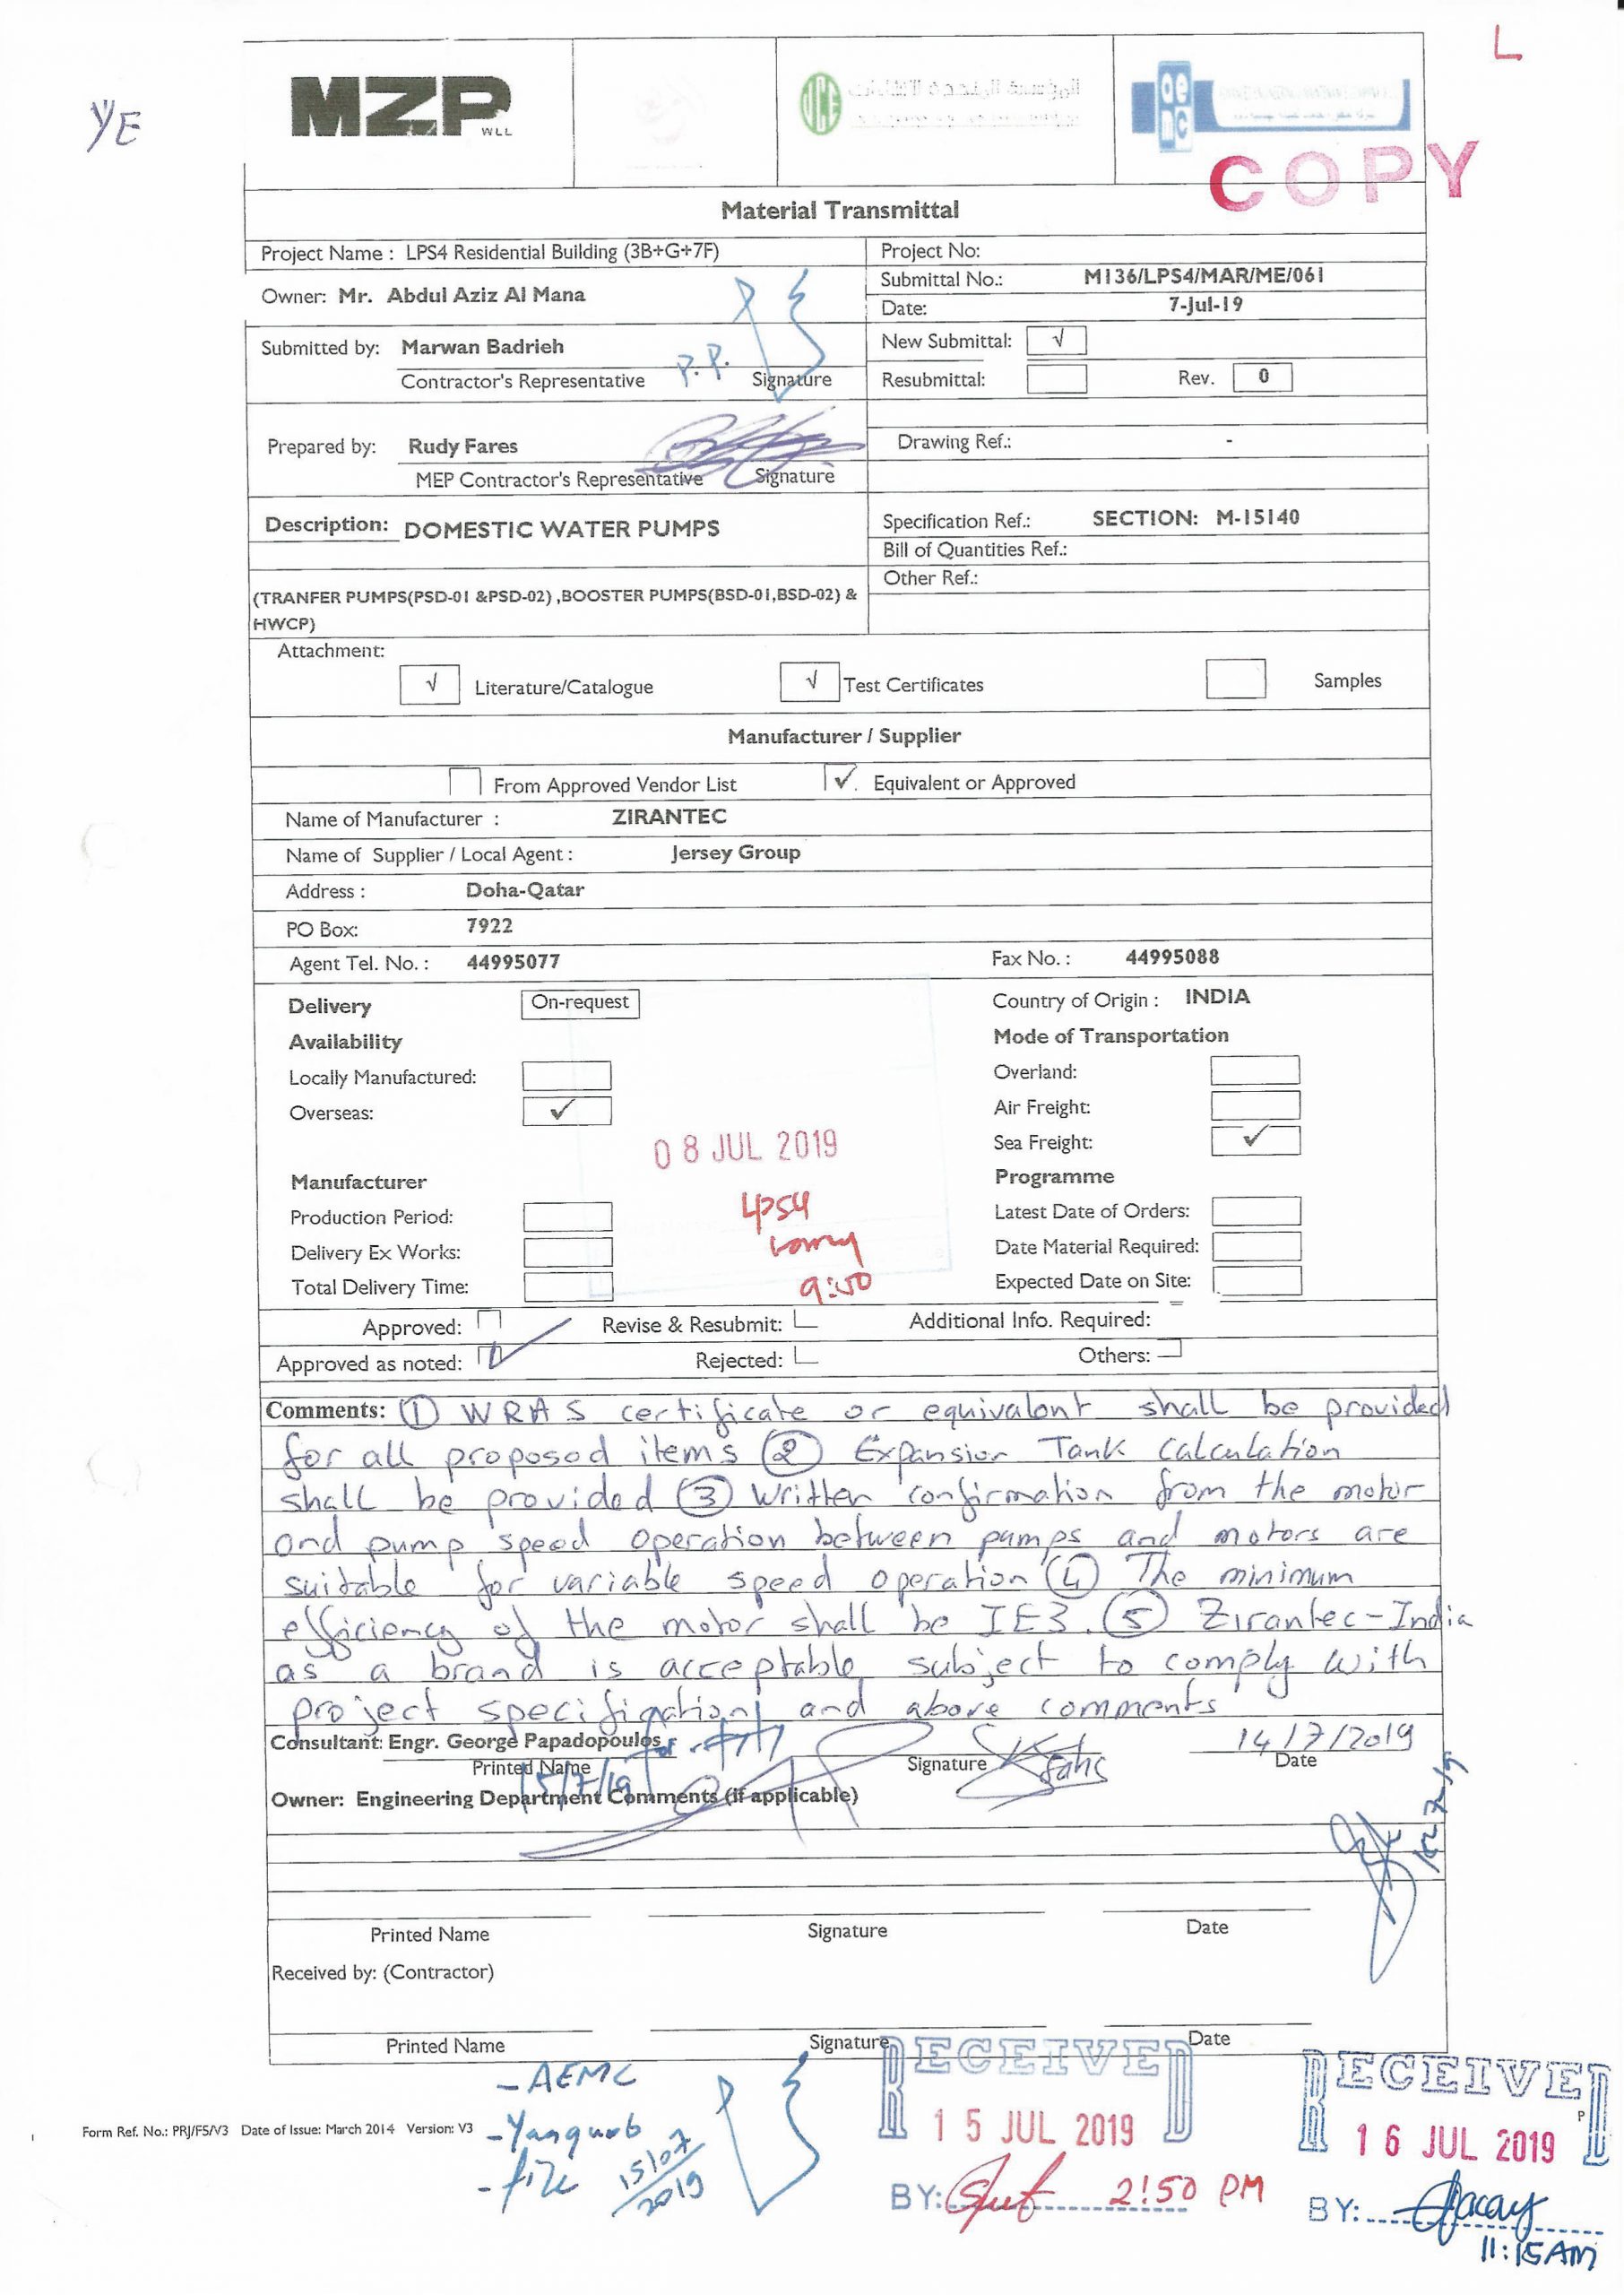 L
YE
MZP
WLL
UCE
aemc
COPY
Material Transmittal
Project Name : LPS4 Residential Building (3B+G+7F)
Project No:
Submittal No.: M136/LPS4/MAR/ME/061
Owner: Mr. Abdul Aziz Al Mana
Date: 7-Jul-19
Submitted by: Marwan Badrieh
New Submittal: √
P.P.
Contractor's Representative Signature
Resubmittal: Rev. 0
Prepared by: Rudy Fares
Drawing Ref.: -
MEP Contractor's Representative Signature
Description: DOMESTIC WATER PUMPS
Specification Ref.: SECTION: M-15140
Bill of Quantities Ref.:
Other Ref.:
(TRANFER PUMPS(PSD-01 &PSD-02) ,BOOSTER PUMPS(BSD-01,BSD-02) &
HWCP)
Attachment:
√ Literature/Catalogue √ Test Certificates Samples
Manufacturer / Supplier
From Approved Vendor List ✓ Equivalent or Approved
Name of Manufacturer : ZIRANTEC
Name of Supplier / Local Agent : Jersey Group
Address : Doha-Qatar
PO Box: 7922
Agent Tel. No. : 44995077 Fax No. : 44995088
Delivery On-request Country of Origin : INDIA
Availability Mode of Transportation
Locally Manufactured: Overland:
Overseas: ✓ Air Freight:
08 JUL 2019 Sea Freight: ✓
Manufacturer Programme
Production Period: LPS4 Latest Date of Orders:
Delivery Ex Works: Date Material Required:
Total Delivery Time: 9:50 Expected Date on Site:
Approved: Revise & Resubmit: Additional Info. Required:
Approved as noted: ✓ Rejected: Others:
Comments: ① WRAS certificate or equivalent shall be provided
for all proposed items ② Expansion Tank calculation
shall be provided ③ Written confirmation from the motor
and pump speed operation between pumps and motors are
suitable for variable speed operation ④ The minimum
efficiency of the motor shall be IE3. ⑤ Zirantec-India
as a brand is acceptable subject to comply with
project specification and above comments
Consultant: Engr. George Papadopoulos 14/7/2019
Printed Name Signature Date
15/7/19
Owner: Engineering Department Comments (if applicable)
15-7-19
Printed Name Signature Date
Received by: (Contractor)
Printed Name Signature Date
RECEIVED
RECEIVED
- AEMC
Form Ref. No.: PRJ/F5/V3 Date of Issue: March 2014 Version: V3
- Yaaqoub
- file
15/07
2019
15 JUL 2019
P
16 JUL 2019
BY: 2:50 PM
BY:
11:15AM